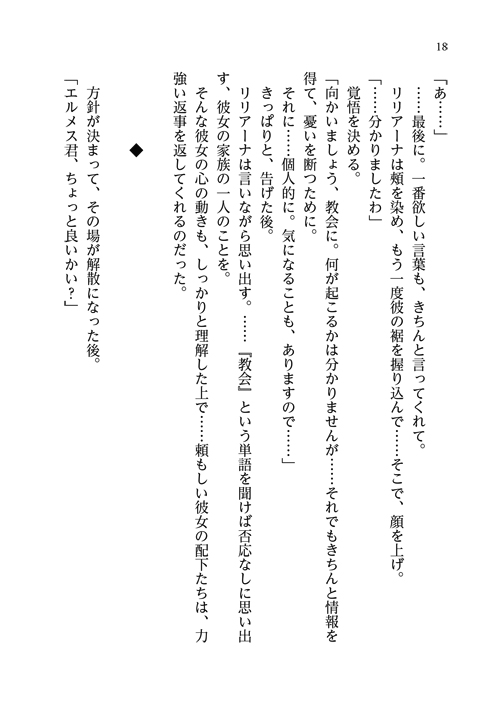 18
「あ……」
……最後に。一番欲しい言葉も、きちんと言ってくれて。
リリアーナは頬を染め、もう一度彼の裾を握り込んで……そこで、顔を上げ。
「……分かりましたわ」
覚悟を決める。
「向かいましょう、教会に。何が起こるかは分かりませんが……それでもきちんと情報を
得て、憂いを断つために。
それに……個人的に。気になることも、ありますので……」
きっぱりと、告げた後。
リリアーナは言いながら思い出す。……『教会』という単語を聞けば否応なしに思い出
す、彼女の家族の一人のことを。
そんな彼女の心の動きも、しっかりと理解した上で……頼もしい彼女の配下たちは、力
強い返事を返してくれるのだった。
◆
方針が決まって、その場が解散になった後。
「エルメス君、ちょっと良いかい？」